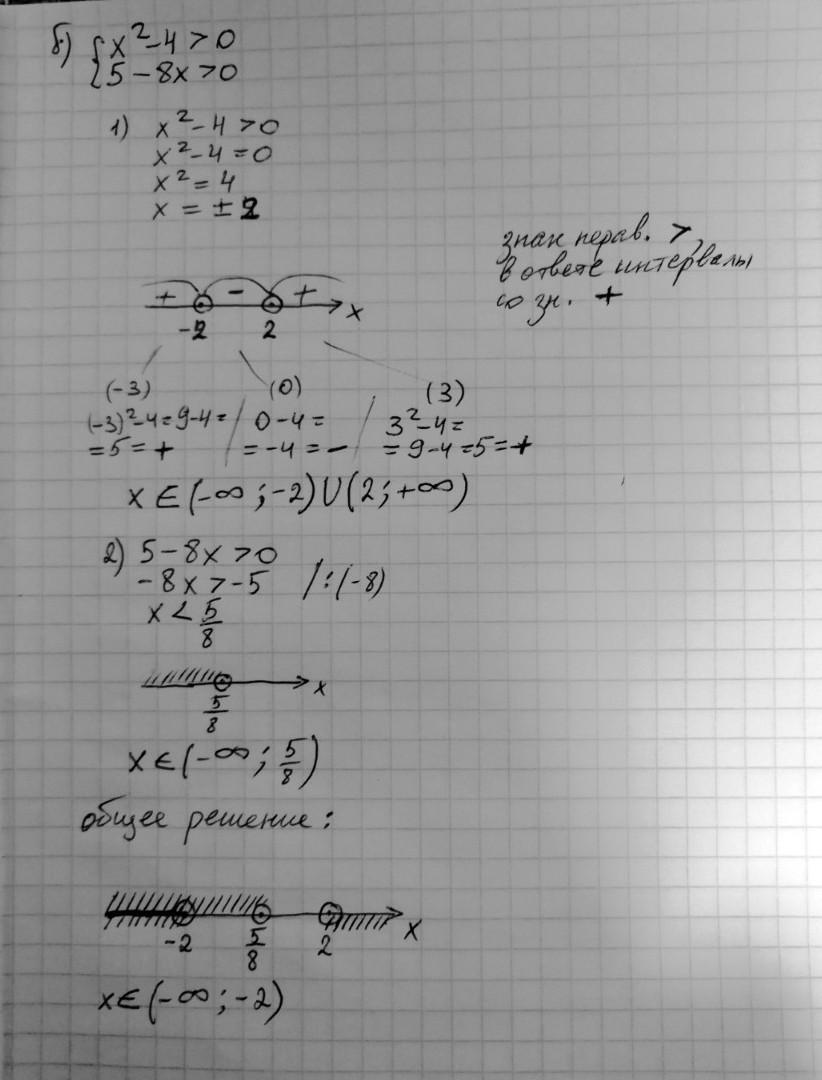 б) { x² - 4 > 0
5 - 8x > 0
1) x² - 4 > 0
x² - 4 = 0
x² = 4
x = ± 2
знак нерав. >,
в ответе интервалы
со зн. +
+ - +
-2 2 x
(-3) (0) (3)
(-3)² - 4 = 9 - 4 = / 0 - 4 = / 3² - 4 =
= 5 = + = -4 = - = 9 - 4 = 5 = +
x ∈ (-∞ ; -2) ∪ (2 ; +∞)
2) 5 - 8x > 0
-8x > -5 / : (-8)
x < 5/8
x
5/8
x ∈ (-∞ ; 5/8)
общее решение :
-2 5/8 2 x
x ∈ (-∞ ; -2)